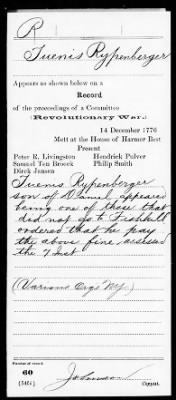 R
Tuenis Rypenberger
Appears as shown below on a
Record
of the proceedings of a Committee
(Revolutionary War.)
14 December 1776
Mett at the House of Harmer Best
Present
Peter R. Livingston Hendrick Pulver
Samuel Ten Broeck Philip Smith
Dirck Jansen
Tuenis Rypenberger
son of Daniel, appeared
being one of those that
did not go to Fishkill
ordered that he pay
the above fine assessed
the 7 Inst
(Various Orgs NY.)
Number of record:
60
(546f) Johnson
Copyist.